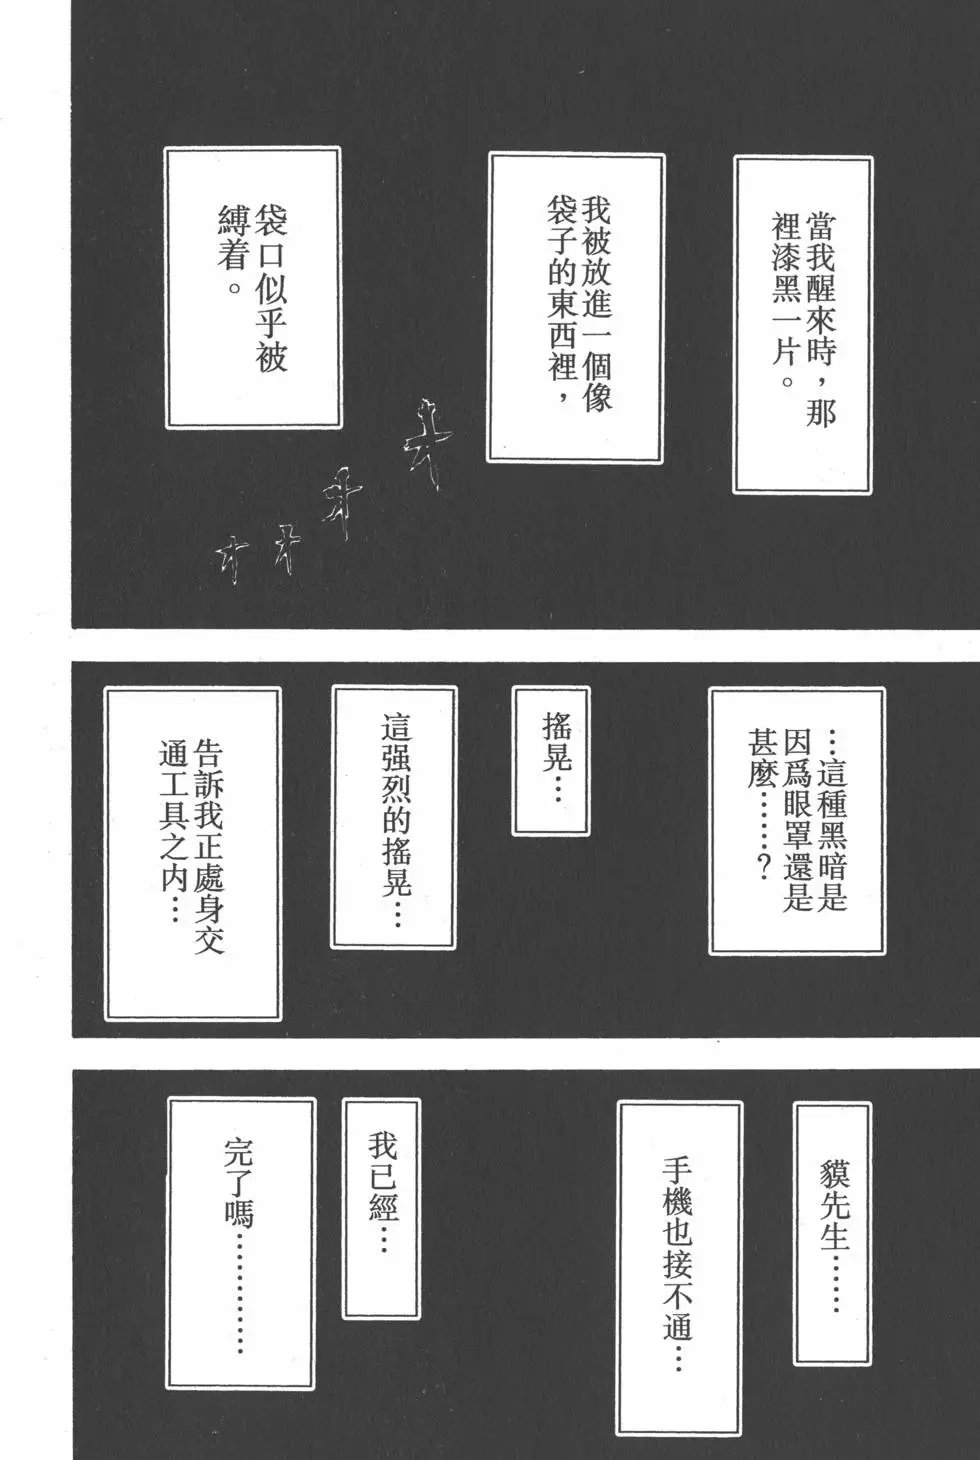 當我醒來時，那
裡漆黑一片。
我被放進一個像
袋子的東西裡，
袋口似乎被
縛着。
オオオオ
…這種黑暗是
因爲眼罩還是
甚麼……？
搖晃…
這强烈的搖晃…
告訴我正處身交
通工具之内…
貘先生……
手機也接不通…
我已經…
完了嗎…………